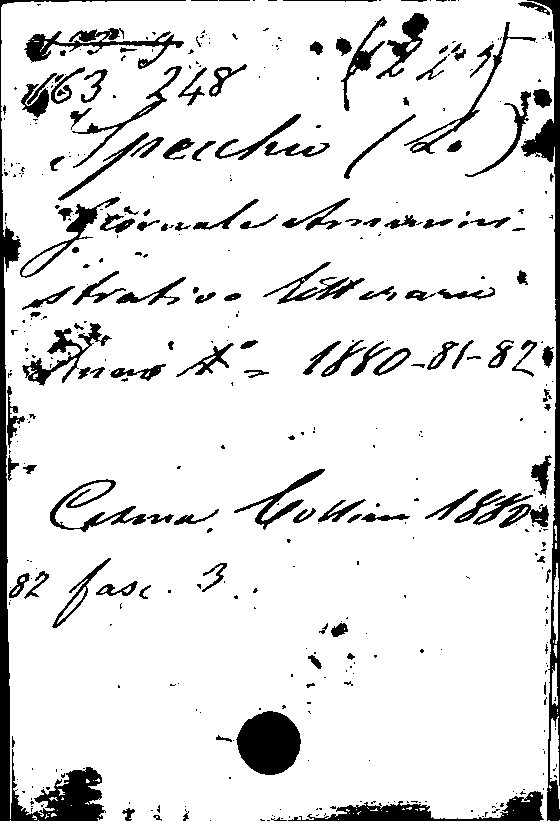 163. 248 (227)
Specchio (Lo)
Giornale Ammini-
strativo letterario
Anno 1880-81-82
Cesena, 1880
82 fasc. 3.